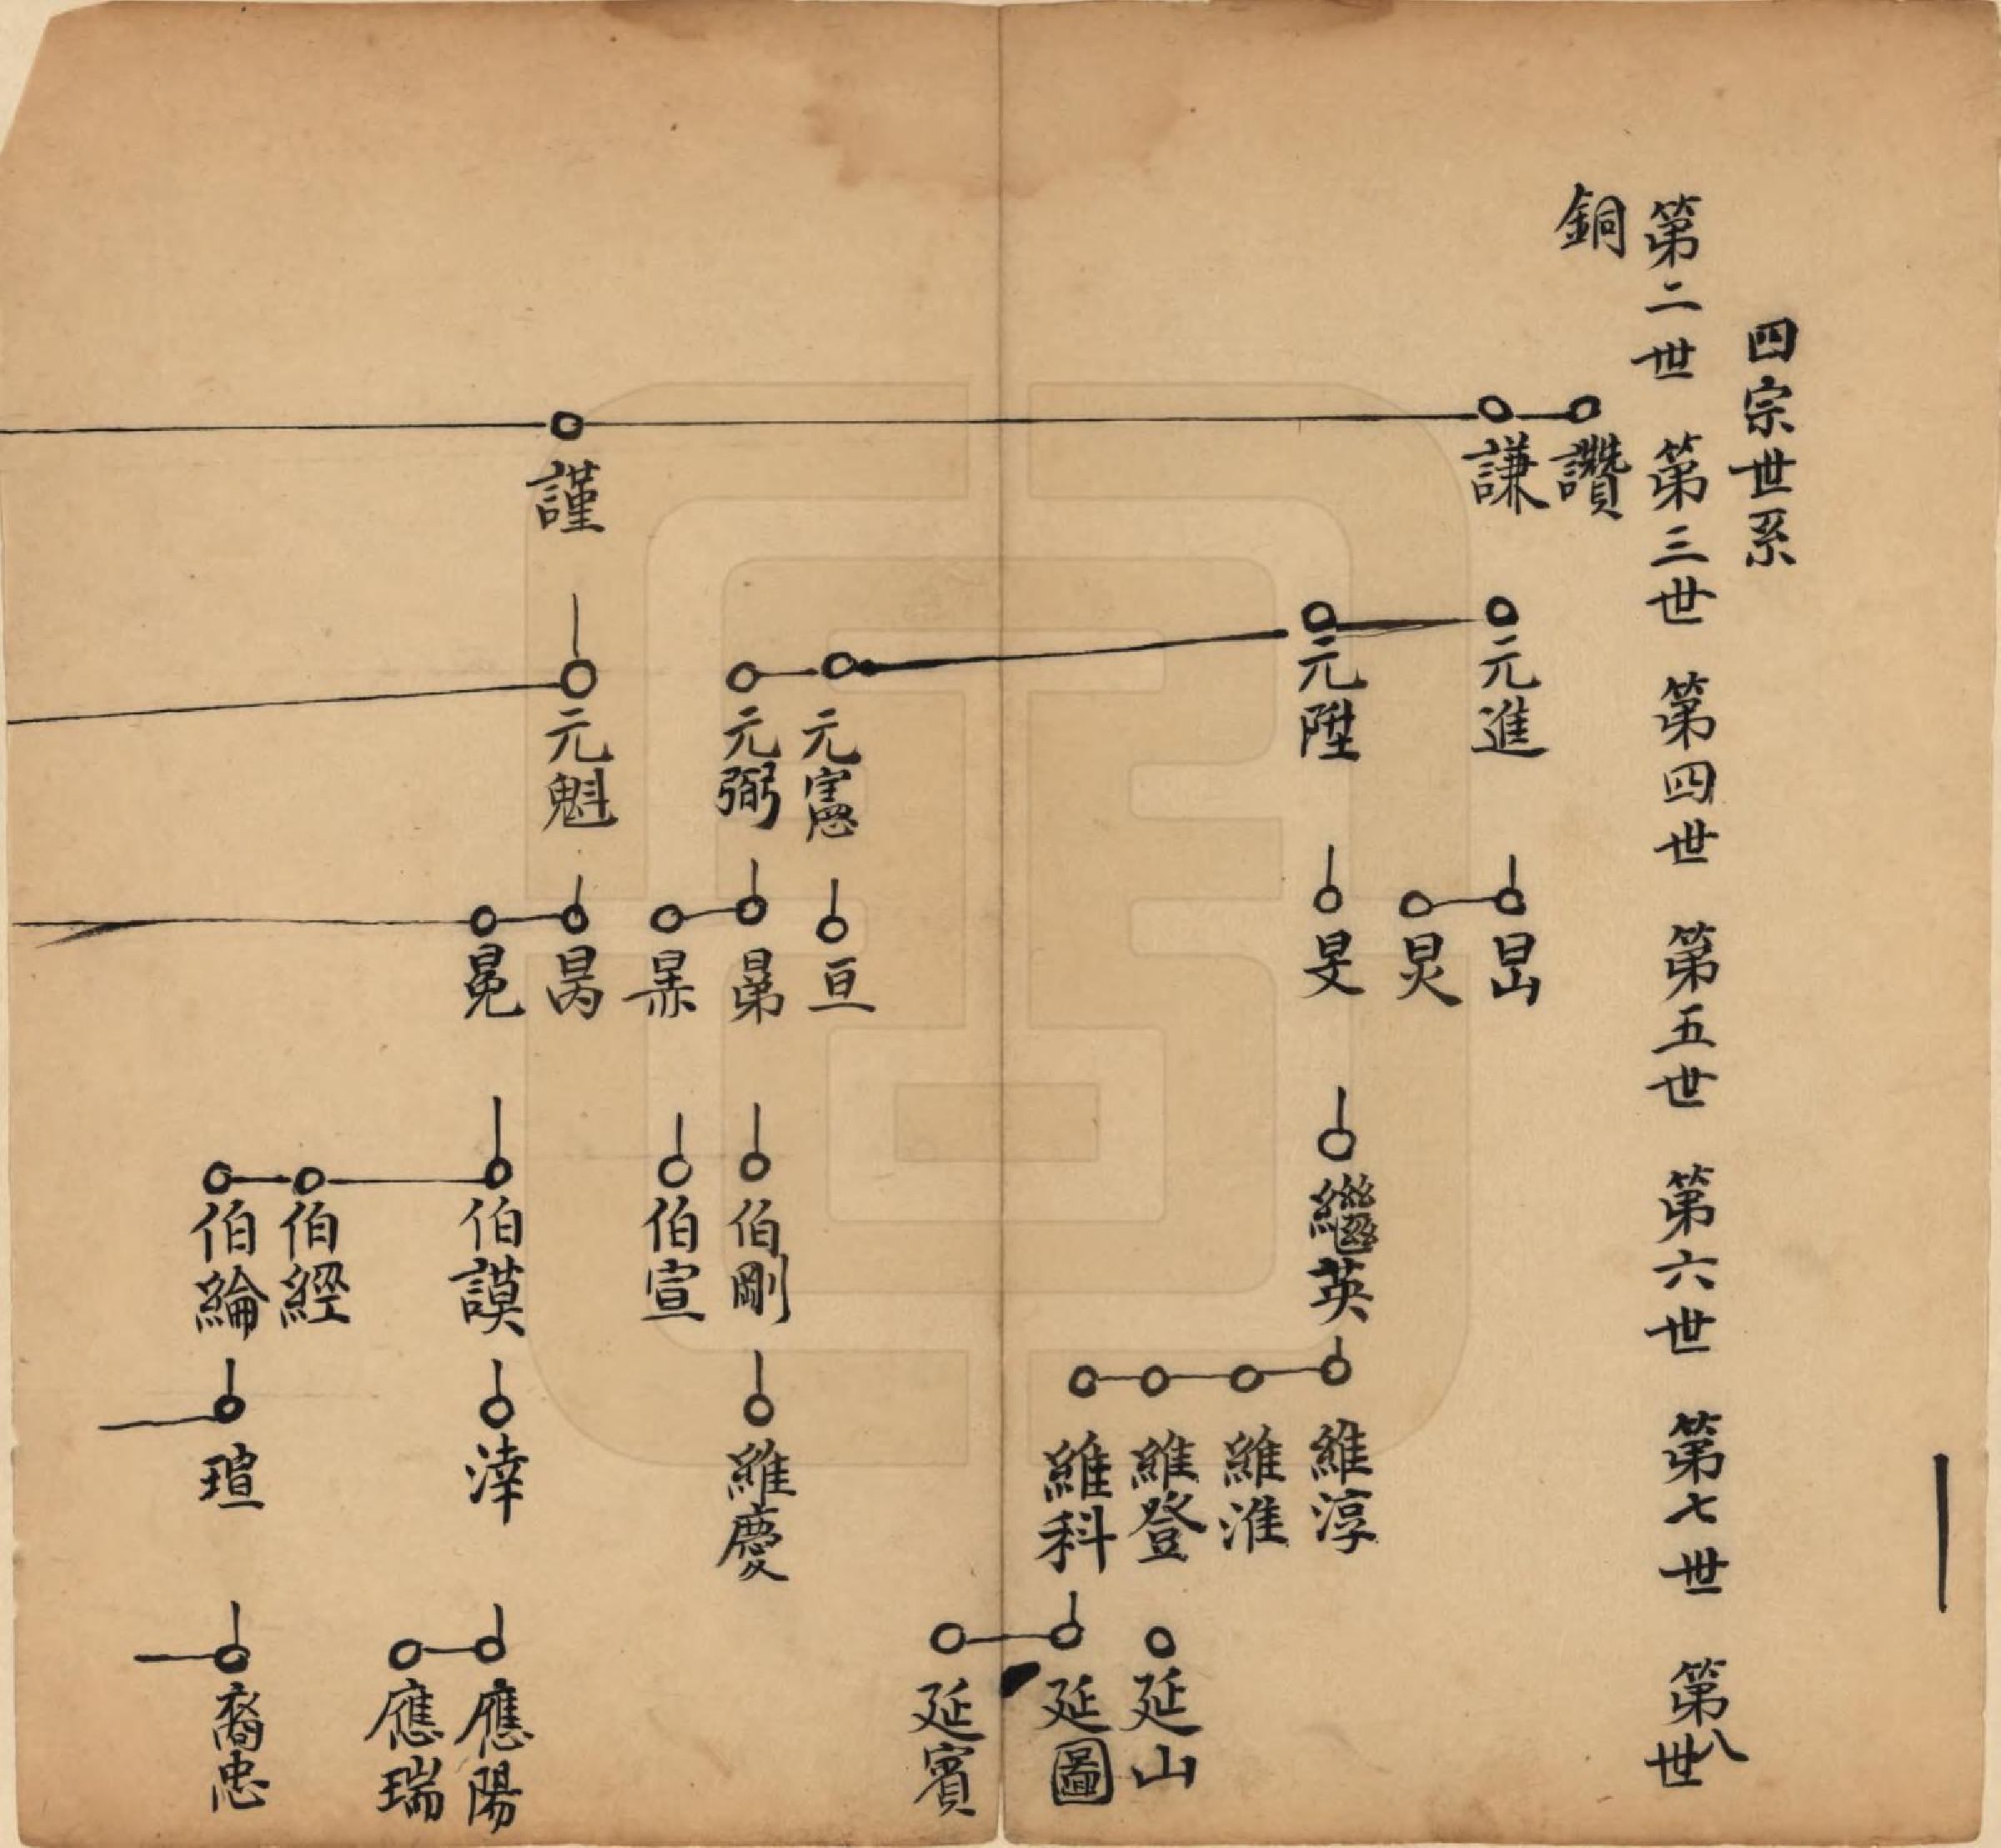 四宗世系
第二世 第三世 第四世 第五世 第六世 第七世 第八世
銅
讚
謙
元進
昷
炅
元陞
旻
繼英
維淳
維淮
維登
延山
維科
延圖
延賓
元憲
亘
元弼
伯剛
維慶
伯宣
謹
元魁
昺
冕
伯謨
涬
應陽
應瑞
伯經
伯綸
瑄
裔忠